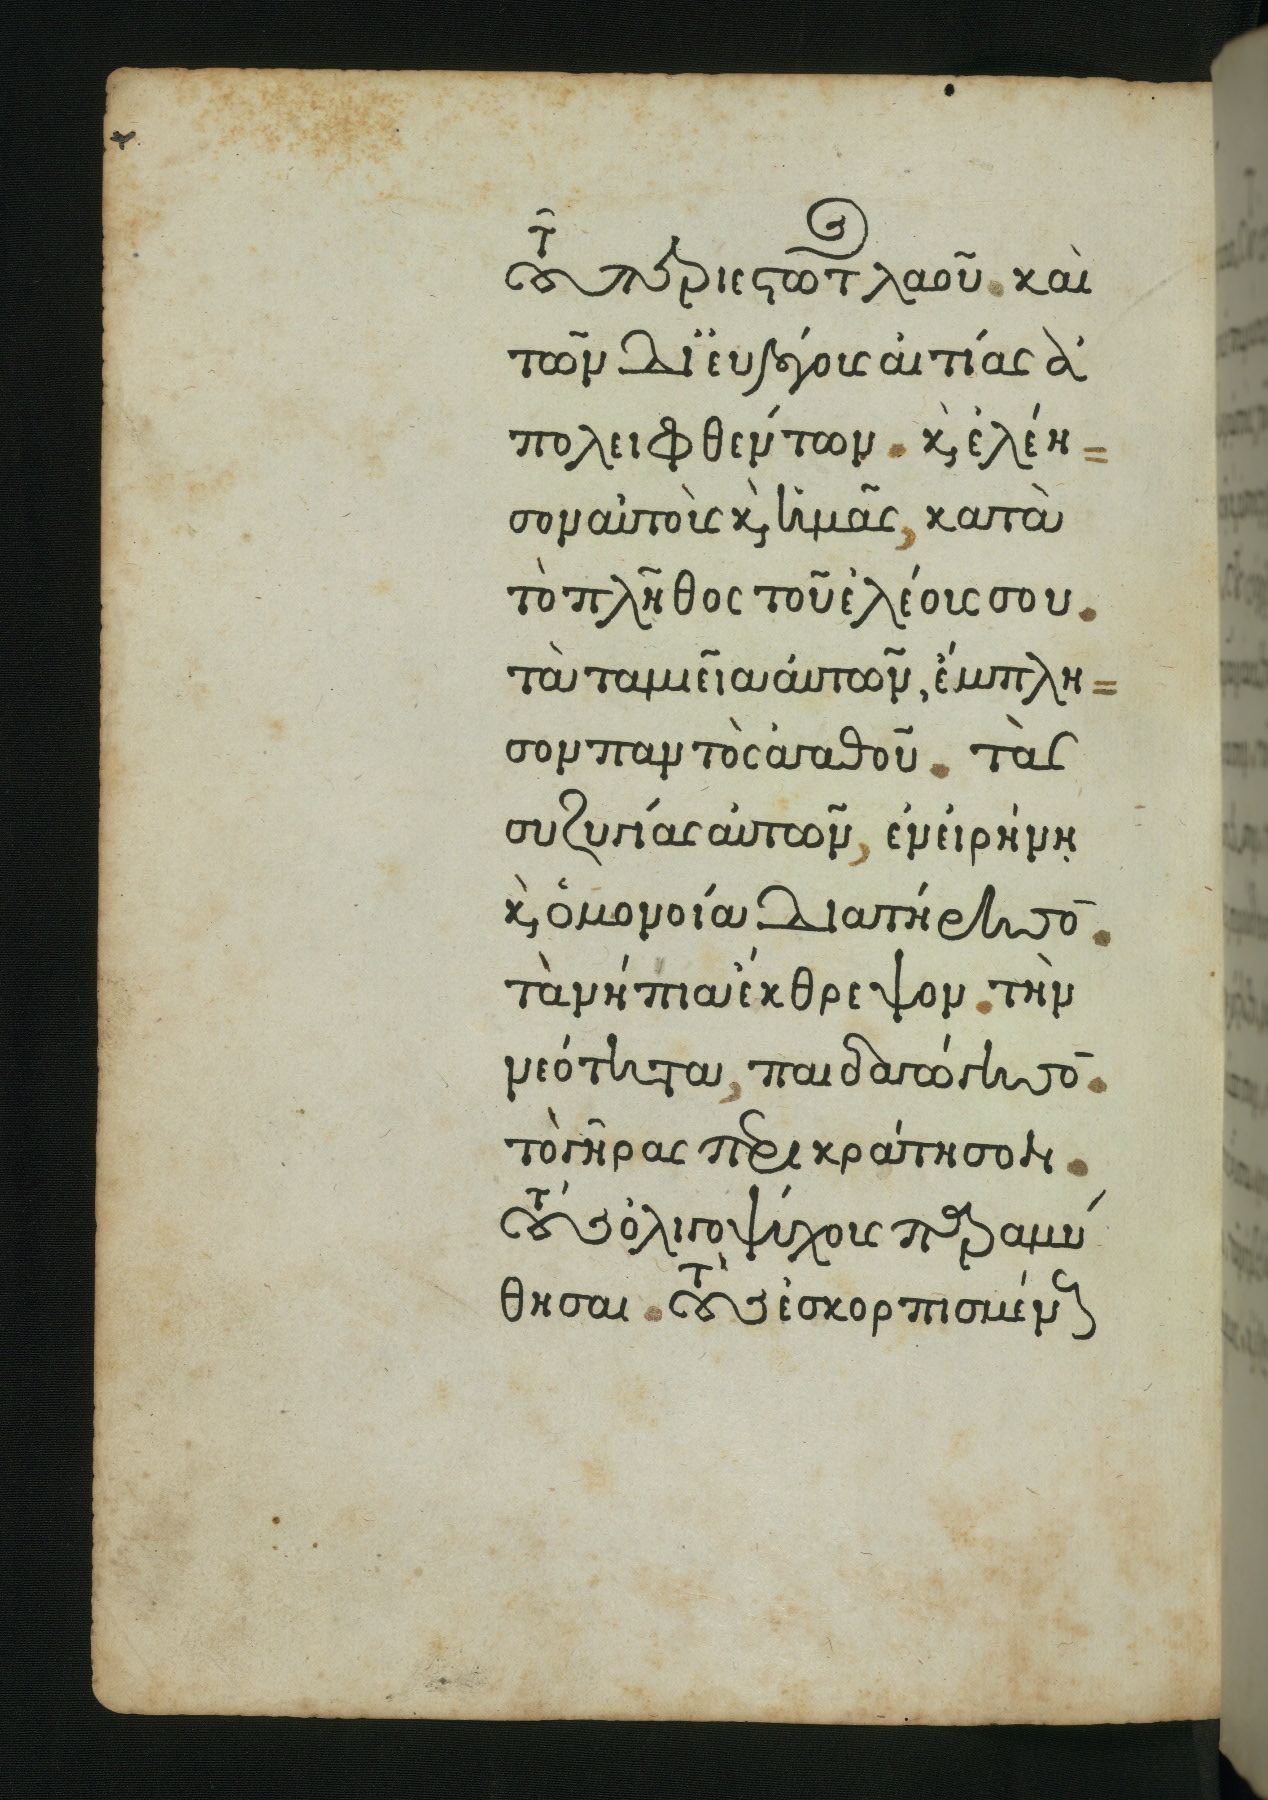 τοῦ περιεστῶτος λαοῦ. καὶ
τῶν δϊευλόγους αἰτίας ἀ
πολειφθέντων. κ, ἐλέη=
σον αὐτοὺς κ, ἡμᾶς, κατὰ
τὸ πλῆθος τοῦ ἐλέους σου.
τὰ ταμιεῖα αὐτῶν, ἔμπλη=
σον παντὸς ἀγαθοῦ. τὰς
συζυγίας αὐτῶν, ἐν εἰρήνῃ
κ, ὁμονοία διατήρησον.
τὰ νήπια ἔκθρεψον. τὴν
νεότητα, παιδαγώγησον.
τὸ γῆρας περικράτησον.
τοὺς ὀλιγοψύχους παραμύ
θησαι. τοὺς ἐσκορπισμένους